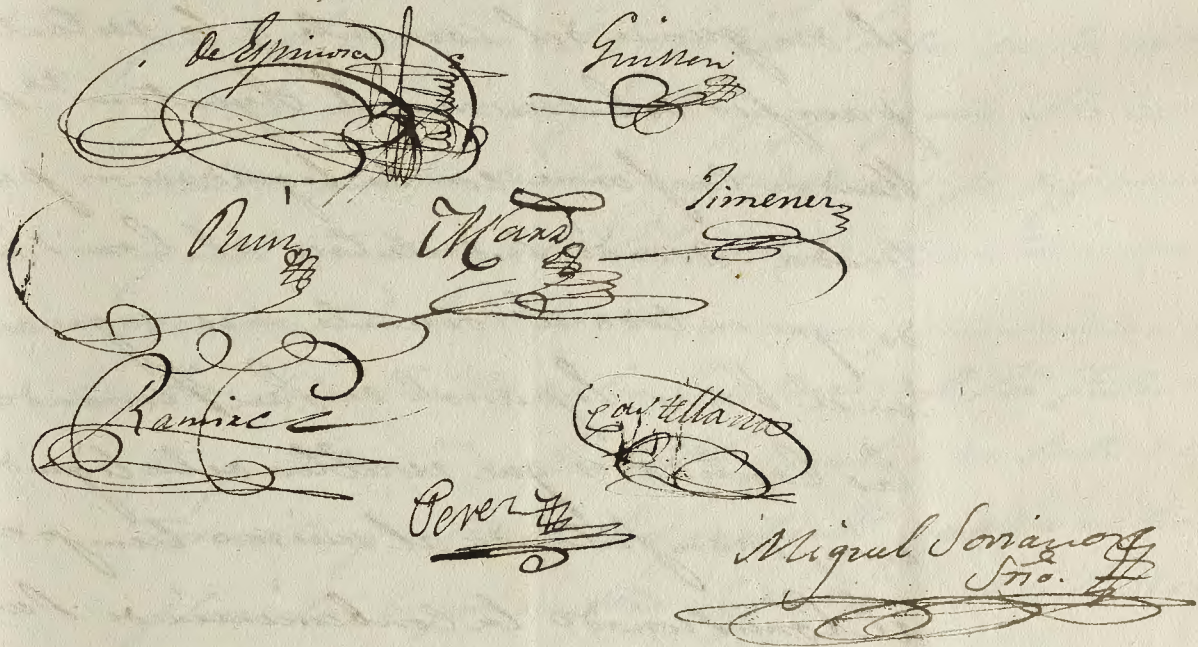 de Espinosa Guillen
Ruiz Jimenez
Ramirez Castellano
Perez
Miguel Soriano
Srio.